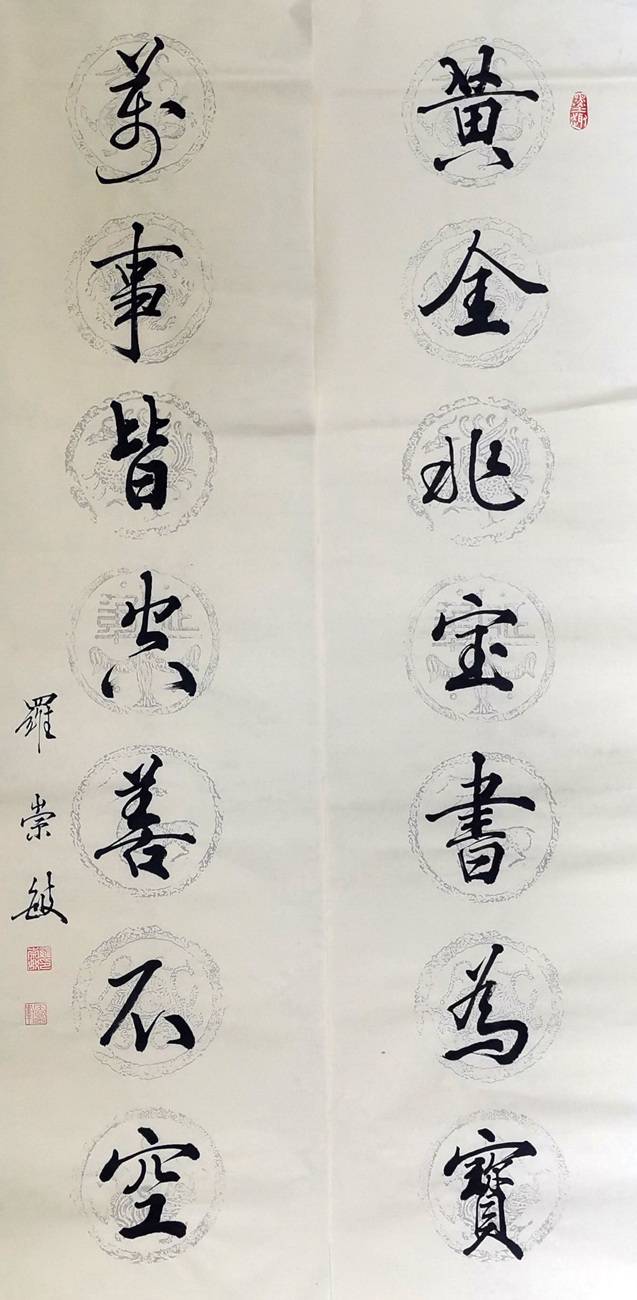 黄金非宝書為寶
萬事皆空善不空
羅崇敏